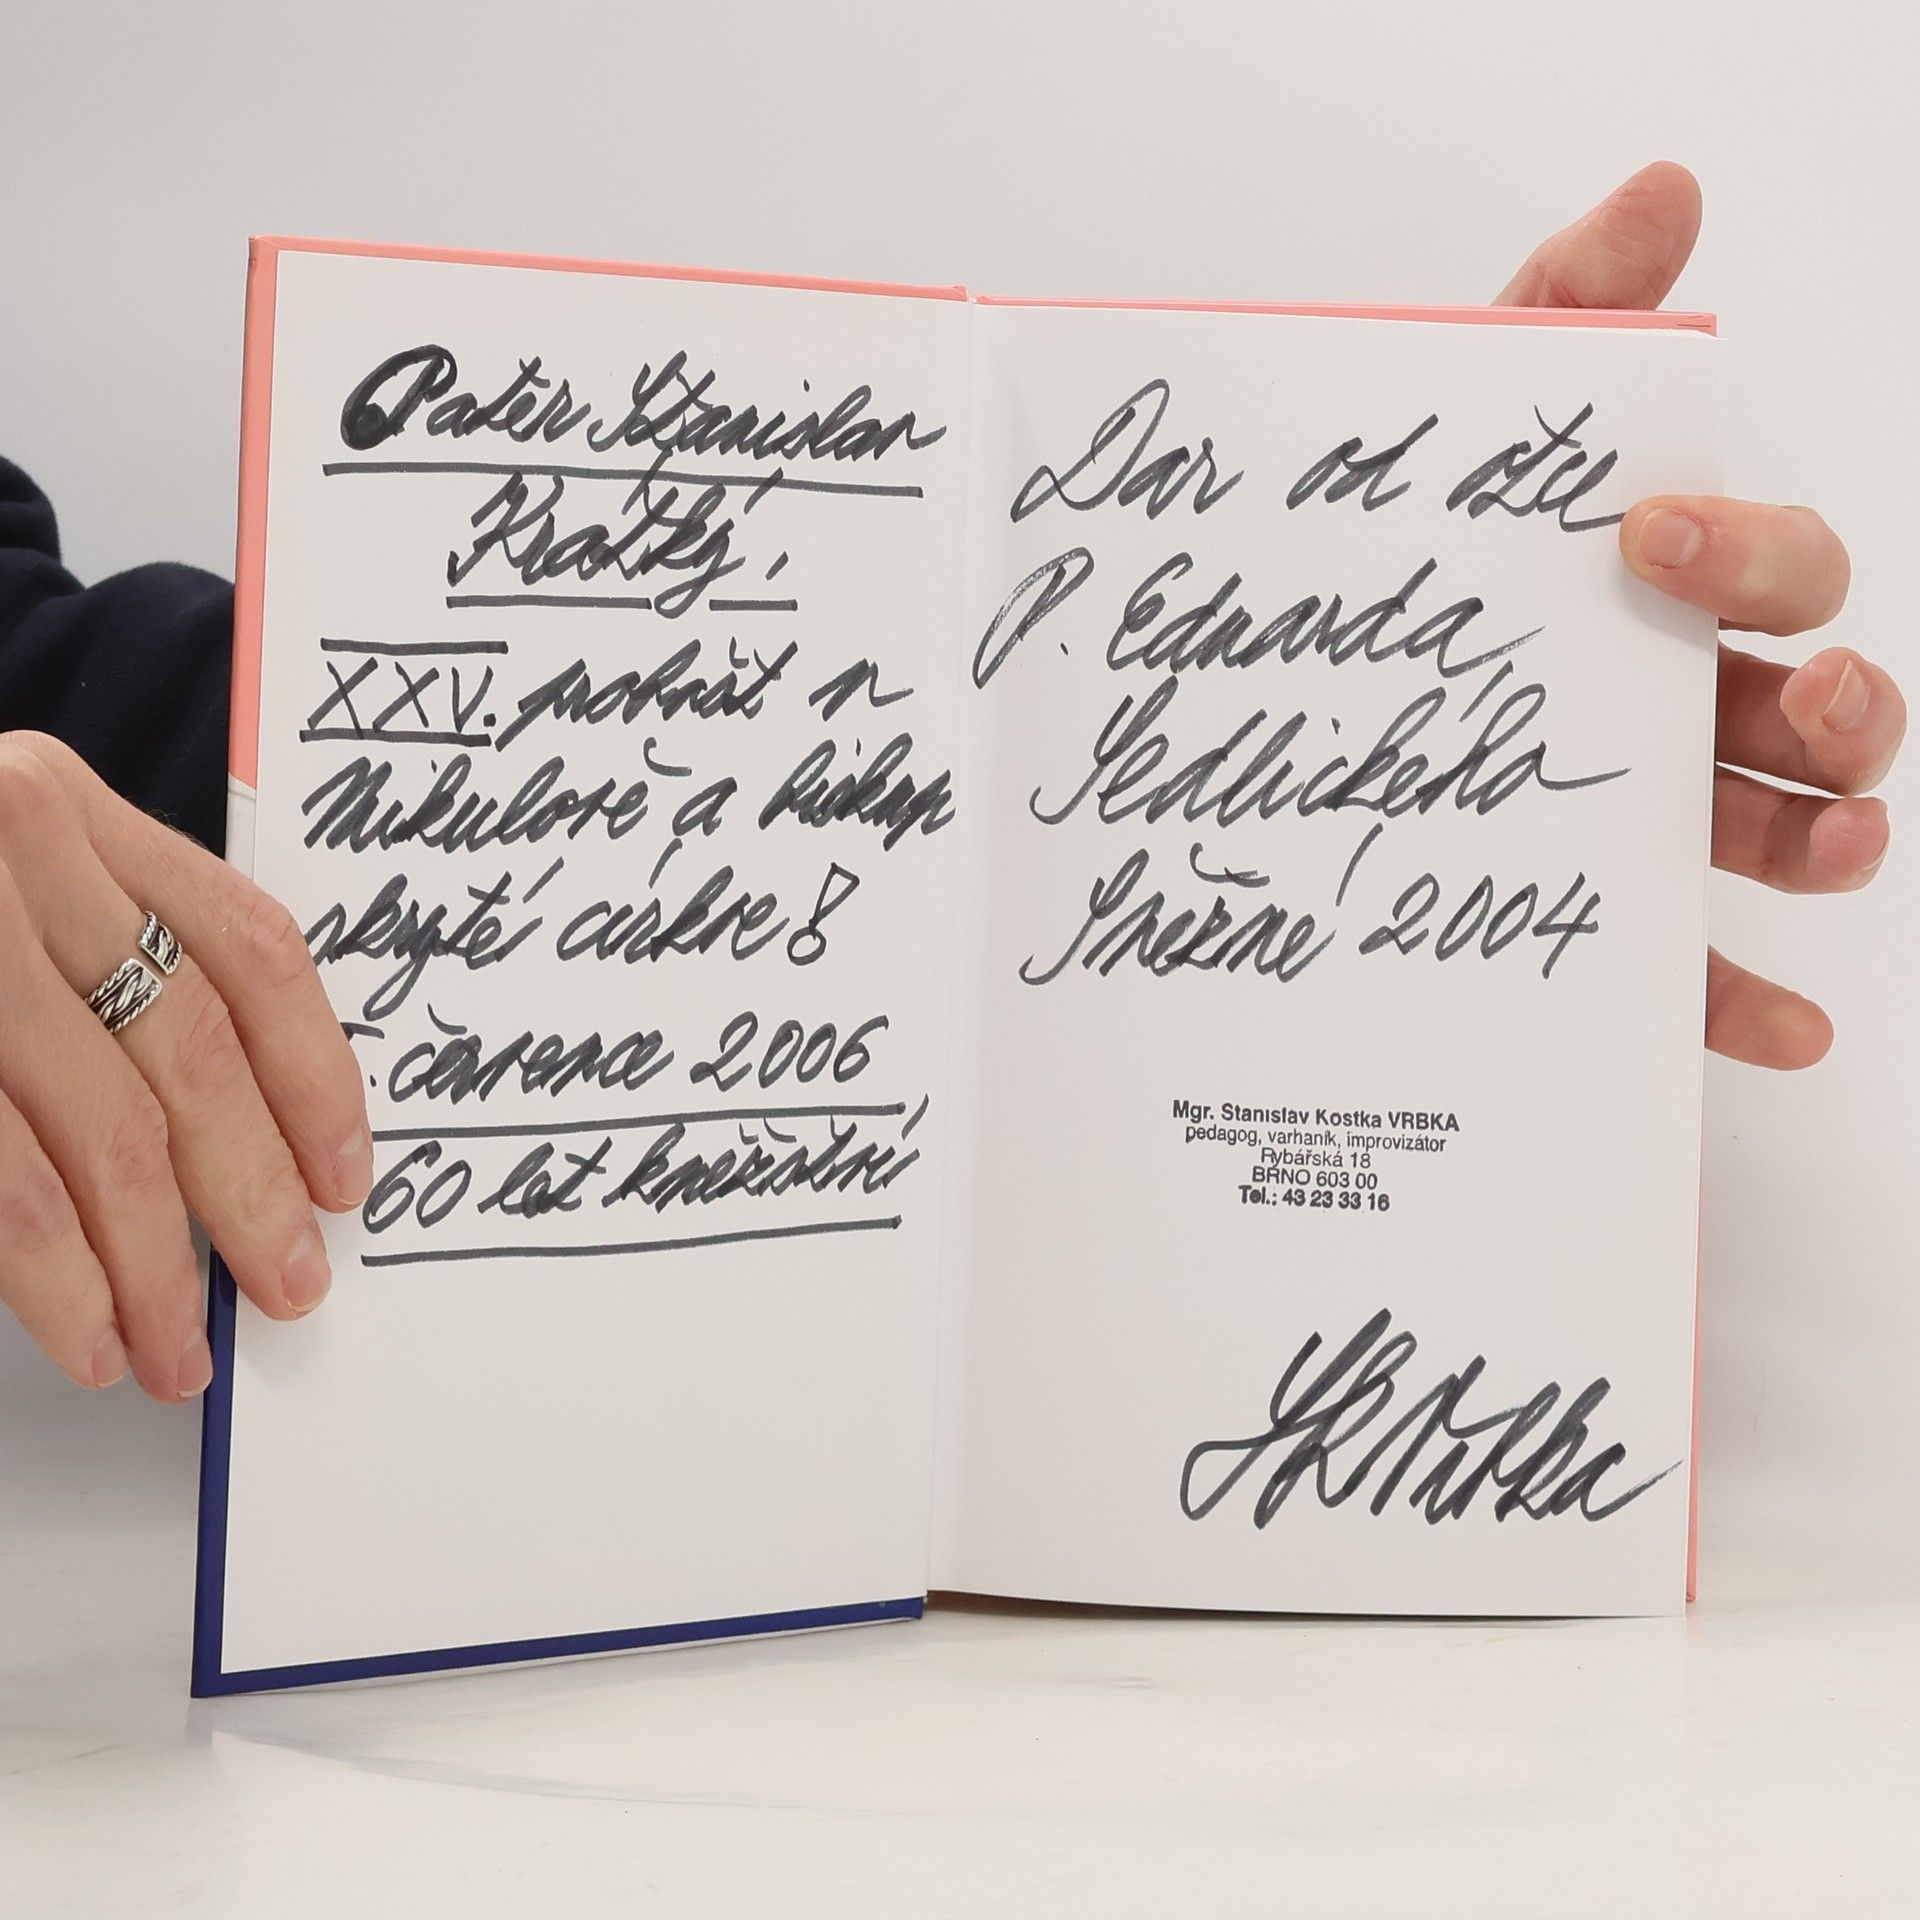 Patér Stanislav
Krátký,
XXV. probošt v
Mikulově a biskup
skryté církve!
. července 2006
60 let kněžství
Dar od otce
P. Eduarda
Sedlického
Sněžné 2004
Mgr. Stanislav Kostka VRBKA
pedagog, varhaník, improvizátor
Rybářská 18
BRNO 603 00
Tel.: 43 23 33 16
SKVrbka